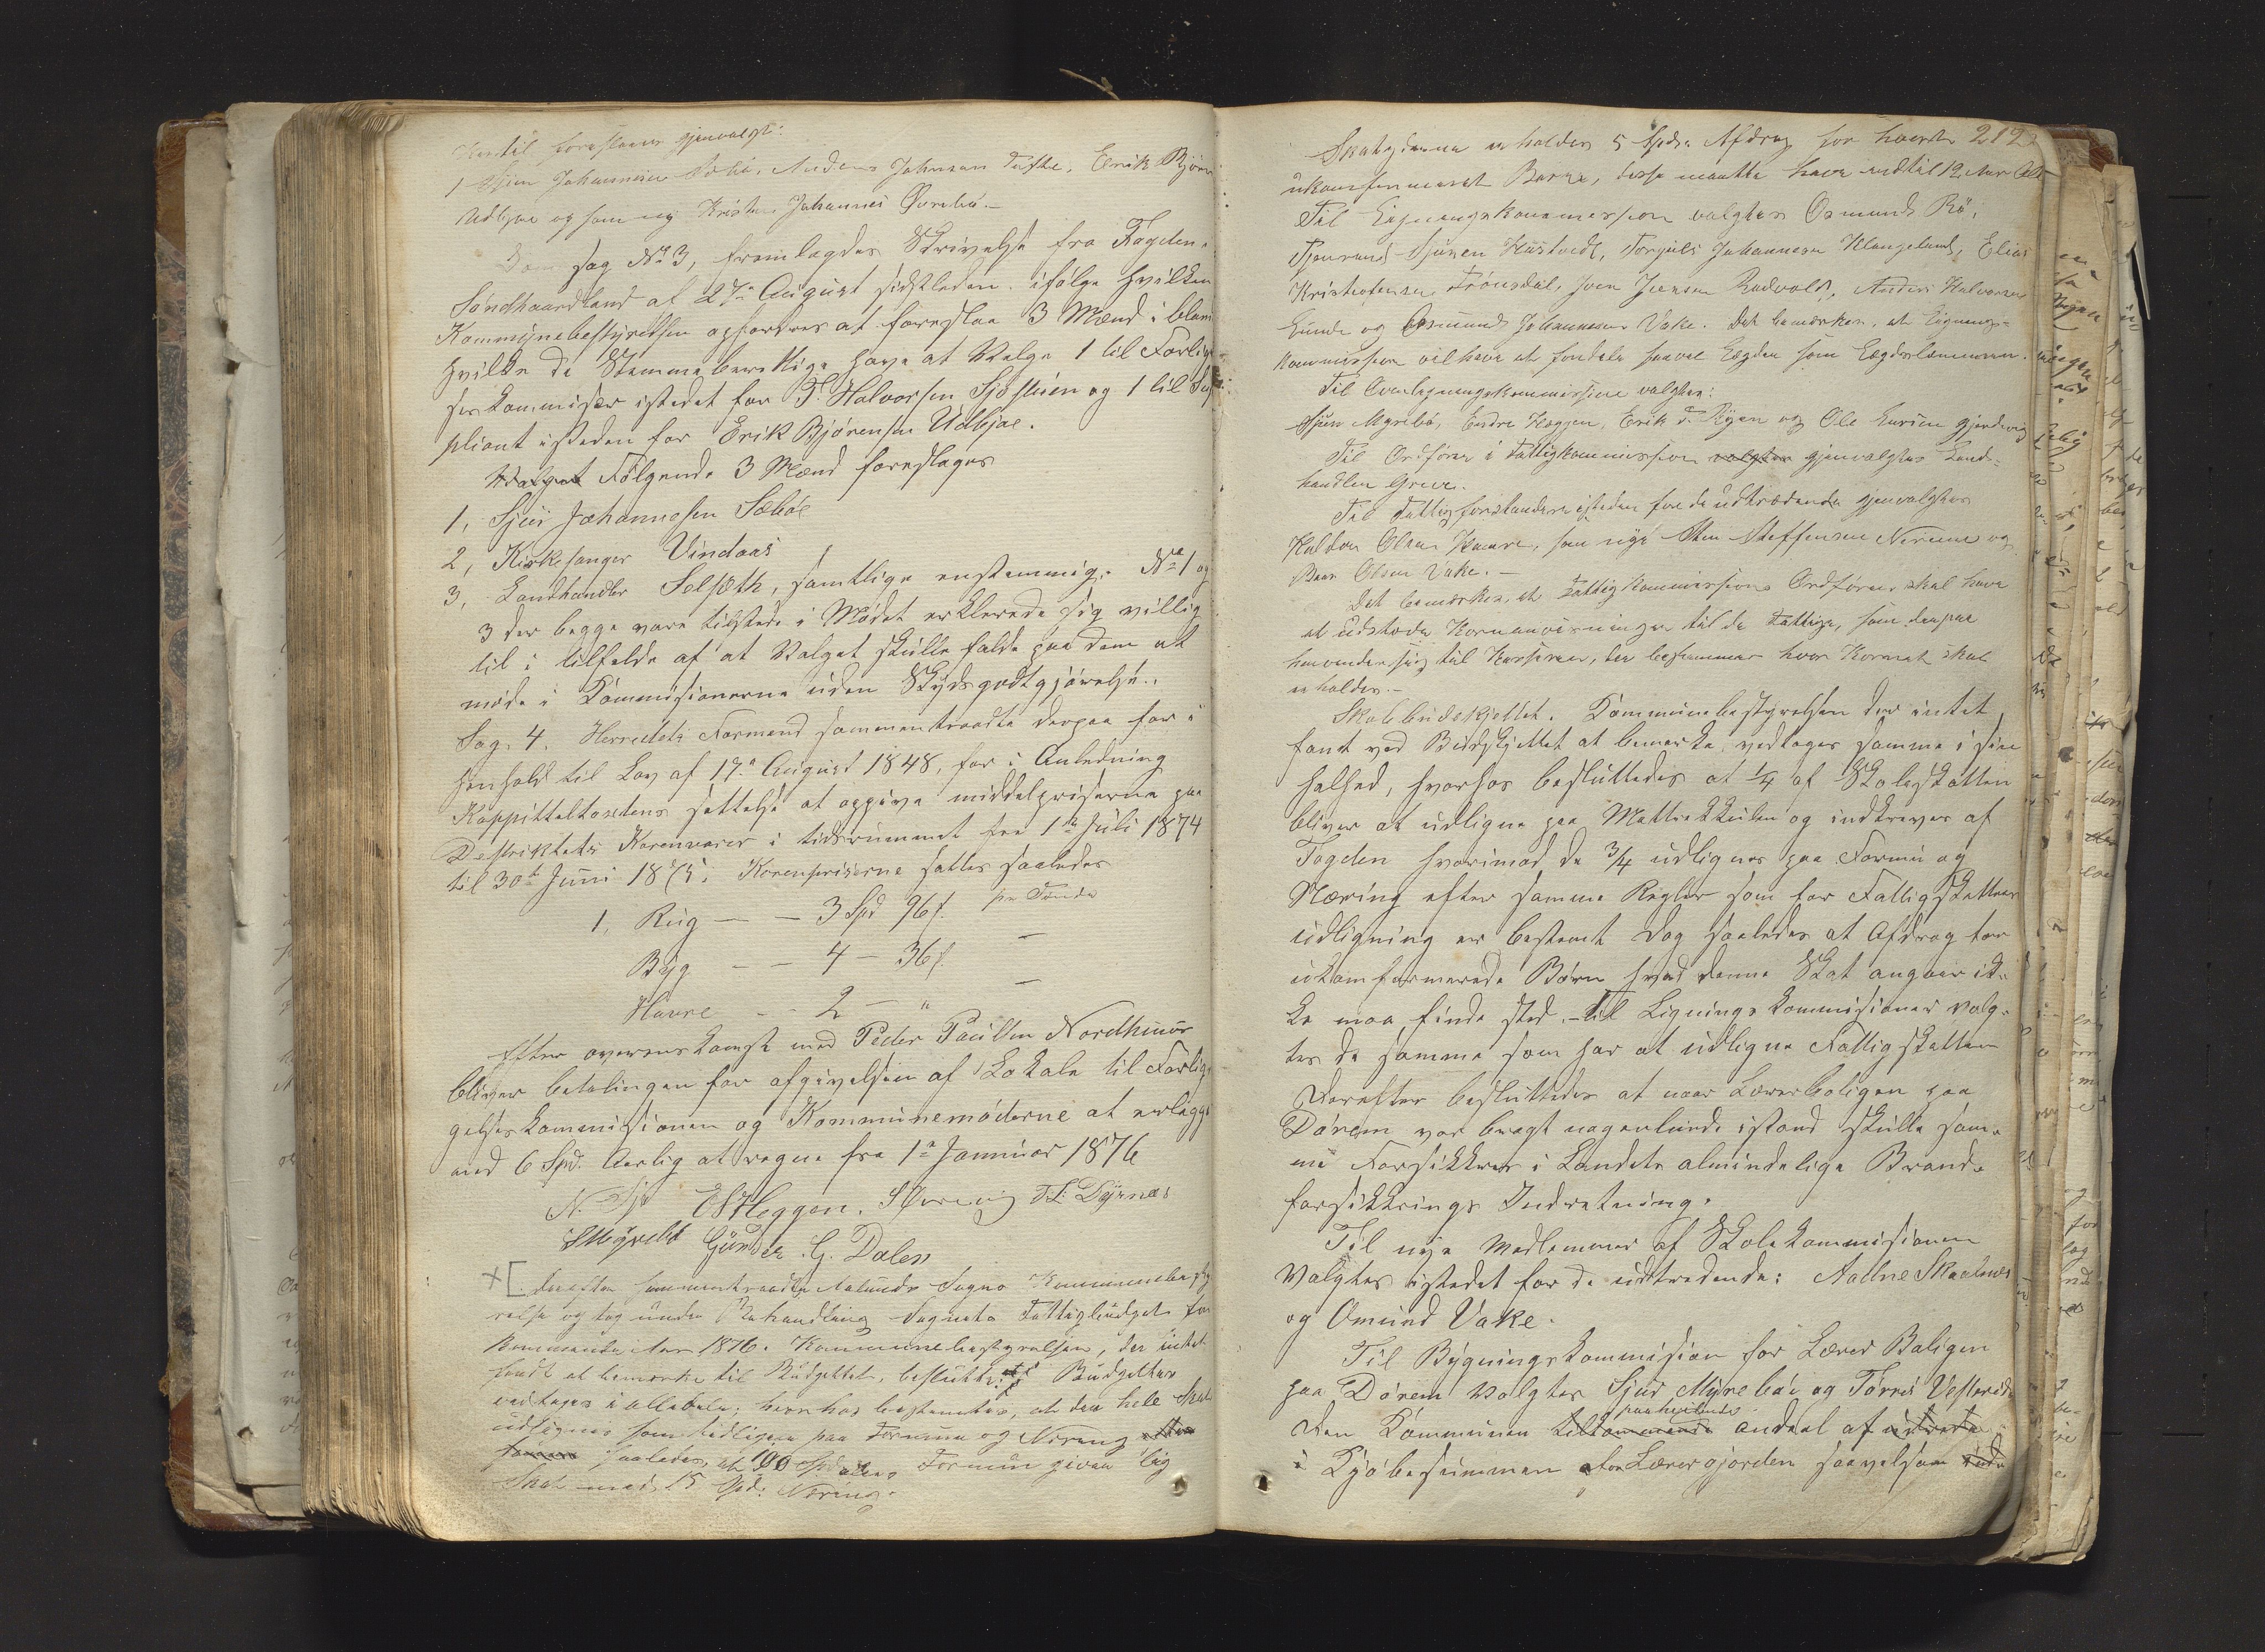 Hertil foreslaaes gjenvalgt:
1 Sjur Johannesen Sæbö, Anders Johnsen Tufte, Erik Bjørn
Udbjoe og som ny Kristen Johannes Øvrebö.–
Som Sag No 3, fremlagdes Skrivelse fra Fogden i
Søndhordland af 27de August sidstleden ifølge hvilken
Kommunebestyrelsen opfordres at foreslaa 3 Mænd i bland
hvilke de Stemmeberettige have at Vælge 1 til Forligel
ses kommisær istedet for T. Halvorsen Sjostuen og 1 til Sup
pliant isteden for Erik Bjørensen Udbjoe.
Valget Følgende 3 Mænd foreslages
1, Sjur Johannesen Sæbøe
2, Kirkesanger Vindaas
3, Landhandler Selseth, samtlige enstemmig. No 1 og
3 der begge vare tilstede i Mødet erklerede sig villig
til i tilfelde af at Valget skulle falde paa dem at
møde i Kommisionerne uden Skydsgodtgjørelse.
Sag. 4. Herredets Formend sammentraadte derpaa for i
henhold til Lov af 17de August 1848, for i Anledning
Kappitteltaxtens settelse at opgive middelpriserne paa
Destriktets Kornvarer i tidsrummet fra 1ste Juli 1874
til 30te Juni 1875. Kornpriserne sattes saaledes
1, Rug — — 3 Spd 96 s. pr Tønde
Byg — — 4 — 36 s. —
Havre — - 2 — " —
Efter overenskomst med Peder Poulsen Nordhuus
bliver betalingen for afgivelsen af Lokale til Forlig
gelseskommisionen og Kommunemøderne at erlægge
med 6 Spd. Aarlig at regne fra 1ste Januar 1876
E S Heggen. T. L. Dyrnes
S Myrebø Gunder G. Dalen
+[. Derefter sammentraadte Aalunds Sogns Kommunebesty
relse og tog under Behandling Sognets Fattigbudget for
kommende Aar 1876. Kommunebestyrelsen, der intet
fandt at bemærke til Budgettet, besluttede Budgettet
vedtages i alle dele; hvorhos bestemtes, at den hele Skat
udlignes som tidligere paa Formue og Næring efter
samme saaledes, at 100 Spdalers Formue giver lig
Skat med 15 Spd. Næring.
212
Skatyderne erholder 5 Spd. Afdrag for hvert
ukonfirmeret Barn, disse maatte have indtil 12 Aar
Til Ligningskommission valgtes Osmund Rö,
Sjurssen Hustvedt, Torgils Johannesen Klungeland, Elias
Kristofersen Frönsdal, Iver Iversen Rudvold, Anders Halvorsen
Lunde og Osmund Johannesen Vake. Det bemærkes, at Lignings-
kommission vil have at fordele saavel Lægden som Lægdslemmerne.
Til Overligningskommission valgtes:
Sjur Myrebö, Endre Heggen, Erik T. Ryen og Ole Larsen Gjerdevig
Til Ordfører i Fattigkommission valgtes gjenvalgtes Land-
handler Greve.
Til Fattigforstandere isteden for de udtrædende gjenvalgtes
Haldor Olsen Haavre, som nye Sten Steffensen Nerune og
Baar Olsen Vake.–
Det bemærkes, at Fattigkommissions Ordfører skal have
at udstæde Kornanvisninger til de Fattige, som derpaa
henvender sig til Kassereren, der bestemmer hvor Kornet skal
erholdes.–
Skolebudskjettet. Kommunebestyrelsen der intet
fant ved Budskjettet at bemærke, vedtages samme i sin
helhed, hvorhos besluttedes at 1/4 af Skoleskatten
bliver at udligne paa Mattrikkulen og indkræves af
Fogden hvorimod de 3/4 udlignes paa Formue og
Næring efter samme Regler som for Fattigskattens
udligning er bestemt dog saaledes at Afdrag for
ukomfirmerede Børn hvad denne Skat angaar ik-
ke maa finde sted.– Til Ligningskommisioner valg-
tes de samme som har at udligne Fattigskatten
Derefter besluttedes at naar Lærerboligen paa
Dörem var bragt nogenlunde istand skulle sam-
me Forsikkres i Landets almindelige Brand-
forsikkrings Indretning.
Til nye Medlemmer af Skolekommisionen
Valgtes istedet for de udtredende: Aadne Skaalnes
og Omund Vake.
Til Bygningskommision for Lærer Boligen
paa Dörem valgtes Sjur Myrebøe og Tørres Vestvede
paahvilende
Den Kommunen tilkommende andeel af udrede
i Kjøbesummen for Lærergjorden saavelsom